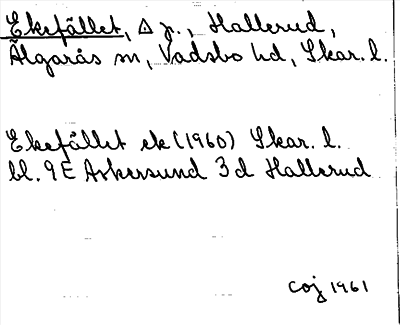 Ekefället, Δ p., Hallerud,
Älgarås sn, Vadsbo hd, Skar. l.
Ekefället ek (1960) Skar. l.
bl. 9E Askersund 3d Hallerud
Coj 1961